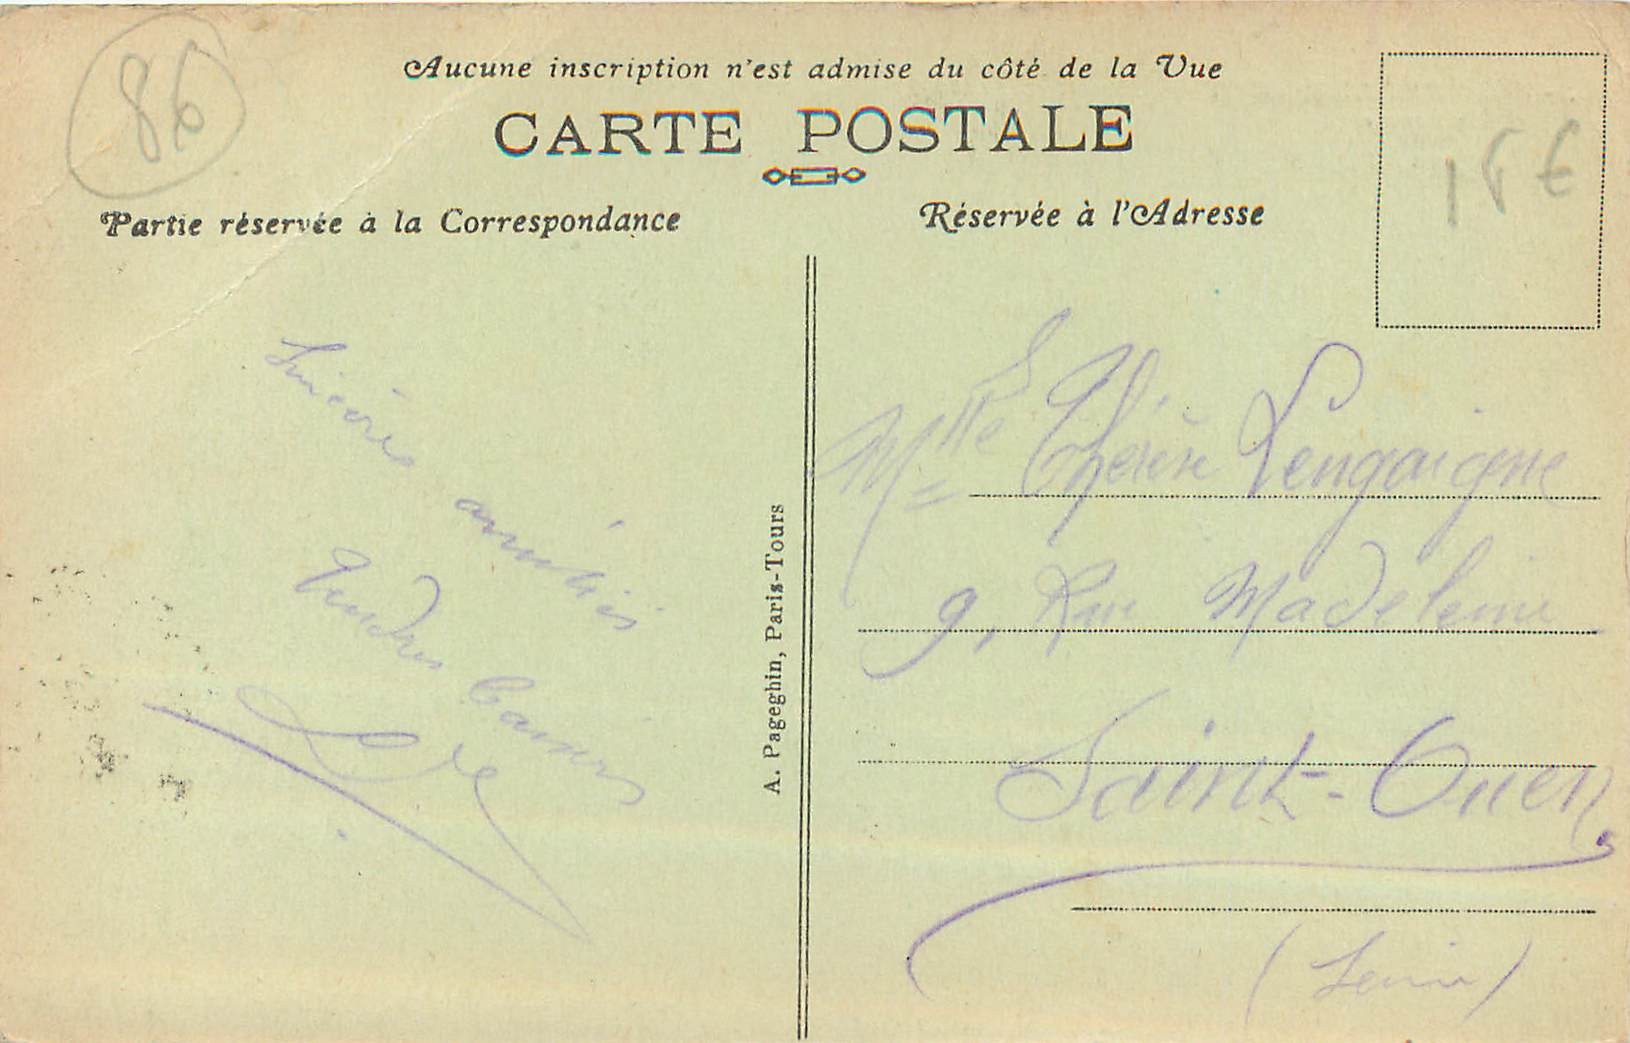 86
Aucune inscription n'est admise du côté de la Vue
CARTE POSTALE
15 €
Partie réservée à la Correspondance
Réservée à l'Adresse
Sincères
amitiés
A. Pageghin, Paris-Tours
Mlle Thérèse Lengaigne
9, Rue Madeleine
Saint-Ouen,
(Seine)